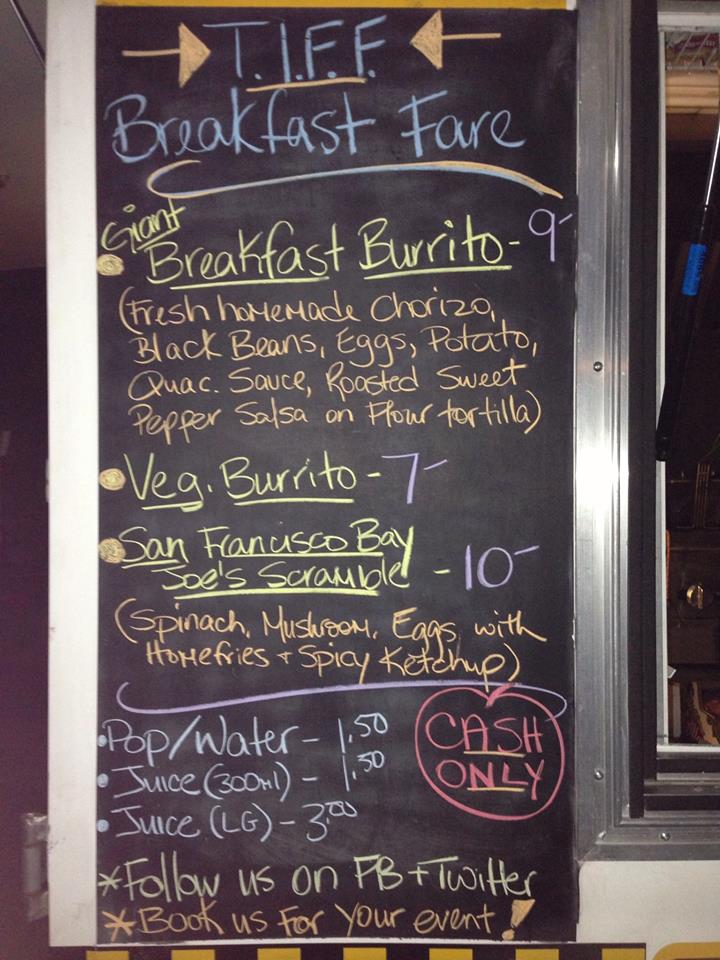 T.I.F.F.
Breakfast Fare
Giant
Breakfast Burrito - 9-
(Fresh homemade Chorizo,
Black Beans, Eggs, Potato,
Guac. Sauce, Roasted Sweet
Pepper Salsa on Flour tortilla)
Veg. Burrito - 7-
San Francisco Bay
Joe's Scramble - 10-
(Spinach, Mushroom, Eggs with
Homefries + Spicy Ketchup)
•Pop/Water - 1.50
•Juice (300ml) - 1.50
•Juice (LG) - 3.00
CASH
ONLY
*Follow us on FB + Twitter
*Book us for your event!